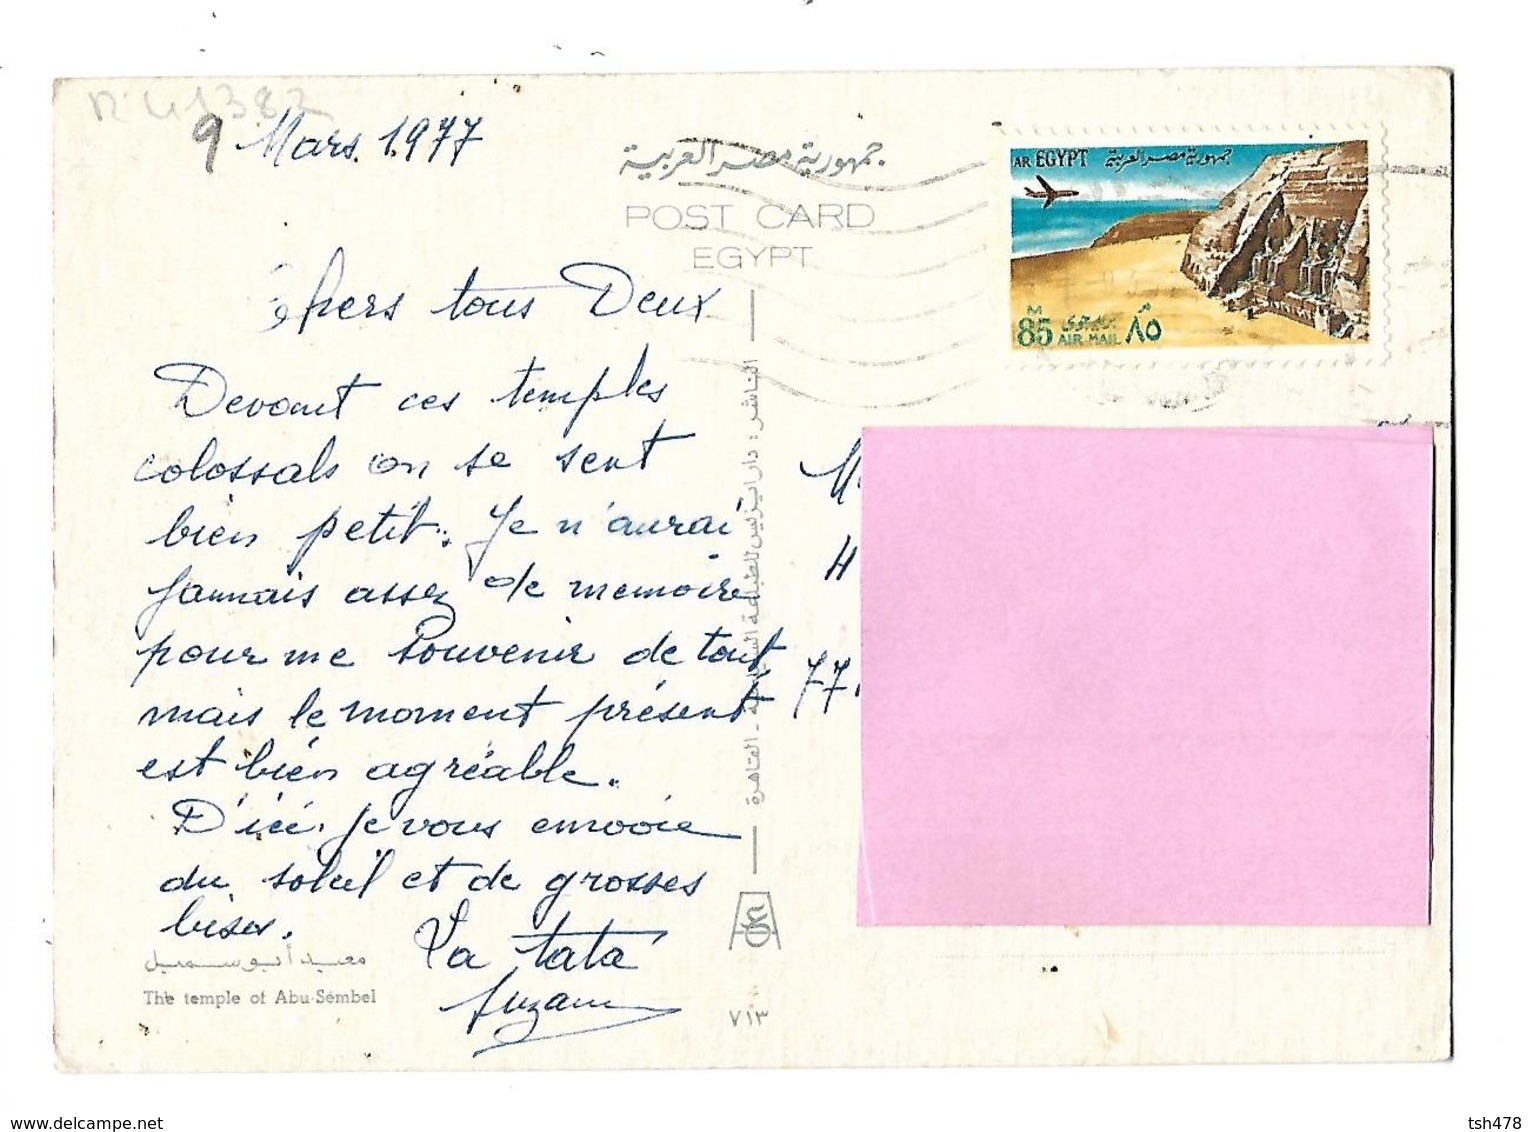 n 41382
9 Mars. 1977
جمهورية مصر العربية
POST CARD
EGYPT
AR EGYPT جمهورية مصر العربية
M 85 AIR MAIL بريد جوى ٨٥
Chers tous Deux
Devant ces temples
colossals on se sent
bien petit. Je n'aurai
jamais assez de memoire
pour me souvenir de tout
mais le moment présent
est bien agréable.
D'ici. je vous envoie
du soleil et de grosses
bises.
La tata
Suzanne
M
H
77.
الناشر : دار ايزيس للطباعة السياحية - القاهرة
معبد أبو سمبل
The temple of Abu-Sembel
٧١٣
delcampe.net
tsh478